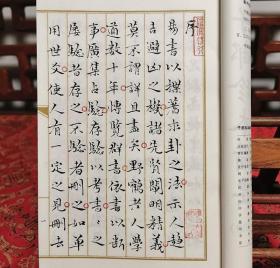 序
易書以揲蓍求卦之法示人趨
吉避凶之機諸先賢闡明精義
莫不謂詳且盡矣野鶴老人學
道數十年博覽群書依書以試
事廣集占驗存驗以考書之
屢驗者存之不驗者刪之如單
用世爻使人有一定之見刪去